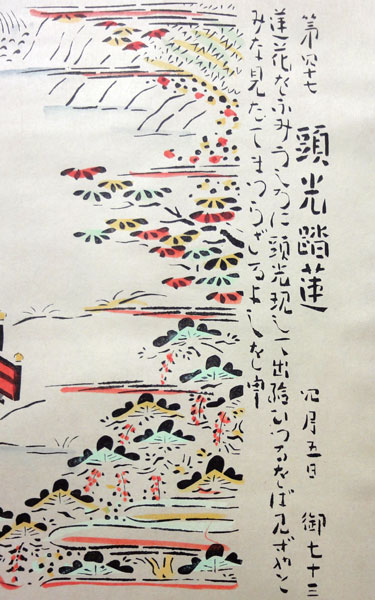 第四十七
頭光踏蓮 四月五日 御七十三
蓮花をふみうしろに頭光現して出給ひつるをば見ずやと
みな見たてまつらざるよしを申